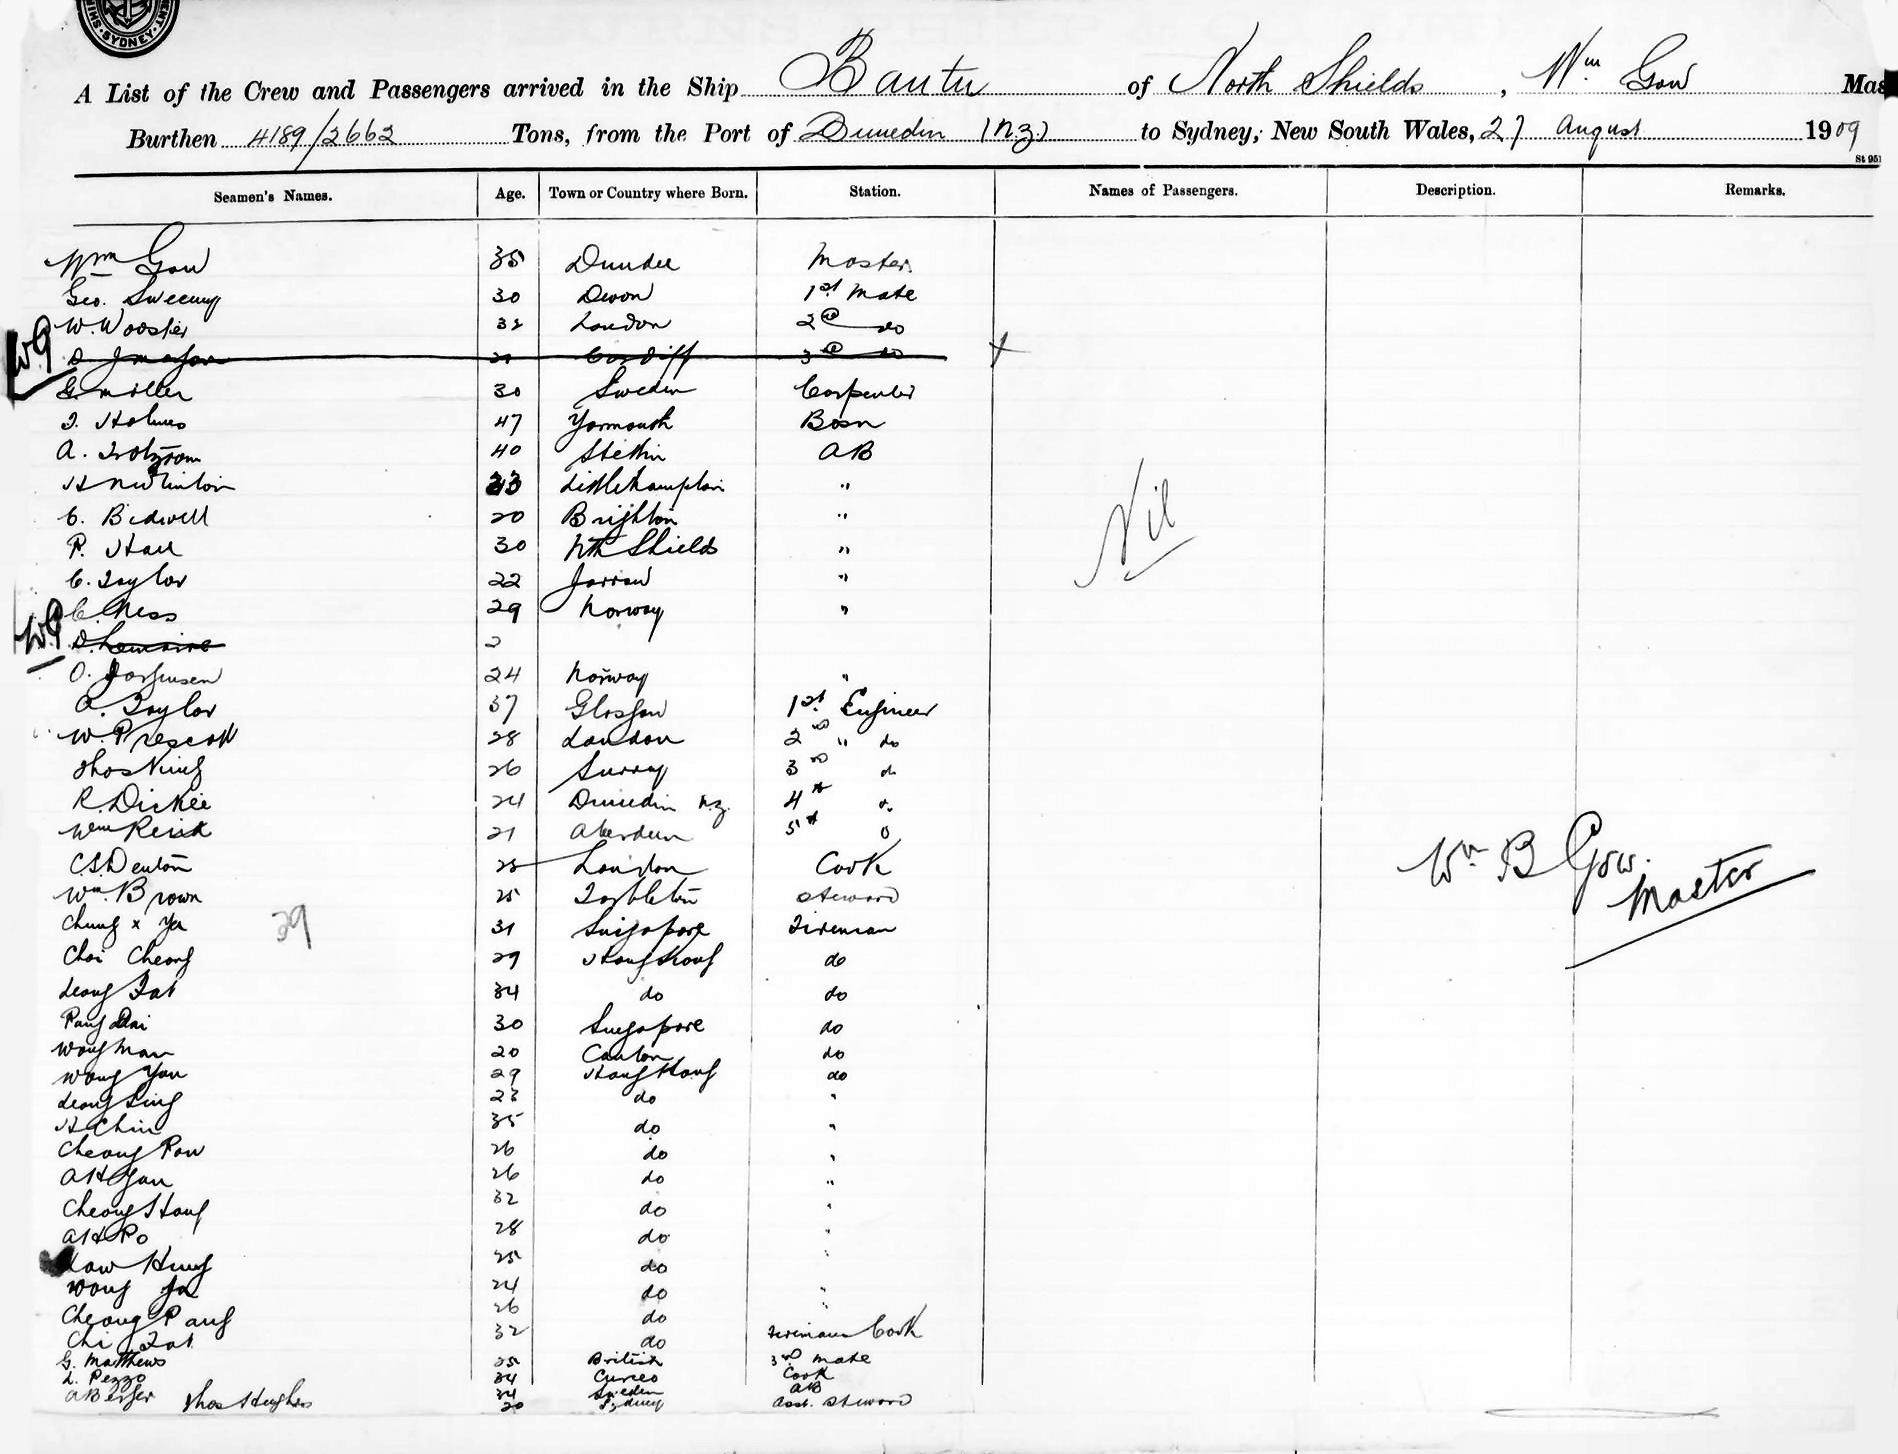 SYDNEY
A List of the Crew and Passengers arrived in the Ship Bantu of North Shields, Wm Gow Mas
Burthen 4189/2662 Tons, from the Port of Dunedin (N.Z.) to Sydney, New South Wales, 27 August 1909
St 951
Seamen's Names. Age. Town or Country where Born. Station. Names of Passengers. Description. Remarks.
Wm Gow 35 Dundee Master
Geo. Sweeny 30 Devon 1st Mate
W. Wooster 32 London 2d do
WG D 21 Cardiff 3d do X
G. Miller 30 Sweden Carpenter
T. Holmes 47 Yarmouth Bosn
A. 40 Stettin AB
H 23 Littlehampton "
C. Bidwell 20 Brighton "
Nil
P. Hall 30 Nth Shields "
C. Taylor 22 Jarrow "
C. Ness 29 Norway "
WG D. Lemaire 2
O. Jorgensen 24 Norway "
A. Taylor 37 Glasgow 1st Engineer
W. Prescott 28 London 2nd " do
Thos King 26 Surrey 3rd do
R. Dickie 24 Dunedin N.Z. 4th
Wm 21 Aberdeen 5th
C.S. Denton 25 London Cook
Wm B Gow.
Master
Wm. Brown 25 Steward
Chung x Ya 31 Singapore Fireman
29
Choi Cheong 29 Hong Kong do
Leong Fat 34 do do
Pang 30 Singapore do
Wong Man 20 Canton do
Wong Yau 29 Hong Kong do
Leong Sing 23 do "
H Chin 35 do "
Cheong Pow 26 do "
AH Yau 26 do "
Cheong Hong 32 do "
AH Po 28 do "
Law Hung 25 do "
Wong 24 do "
Cheong Pang 26 do "
Chi Fat 32 do Firemans Cook
G. Matthews 25 British 3rd Mate
L. Pezzo 34 Cook
A Berger 34 Sweden AB
Thos Hughes 20 Sydney Asst. Steward